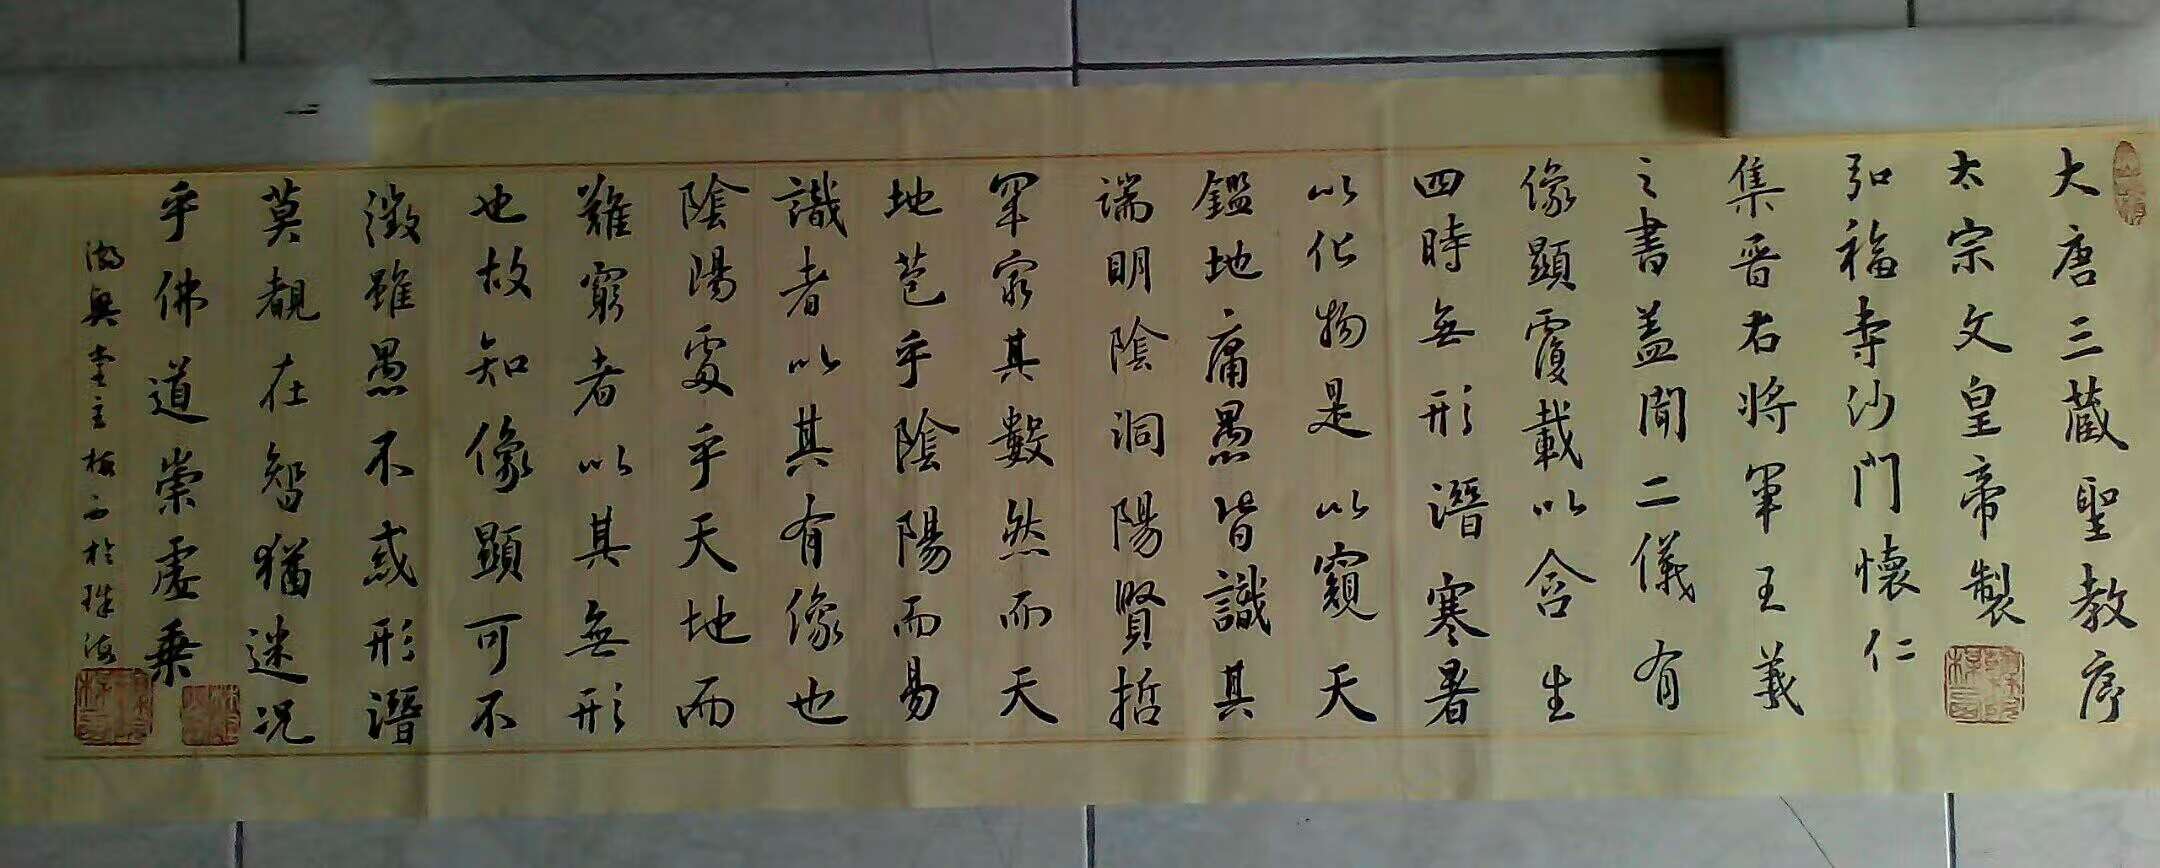 大唐三藏聖教序
太宗文皇帝製
弘福寺沙門懷仁
集晉右將軍王羲
之書蓋聞二儀有
像顯覆載以含生
四時無形潛寒暑
以化物是以窺天
鑑地庸愚皆識其
端明陰洞陽賢哲
罕窮其數然而天
地苞乎陰陽而易
識者以其有像也
陰陽處乎天地而
難窮者以其無形
也故知像顯可不
徵雖愚不惑形潛
莫覩在智猶迷況
乎佛道崇虛乗
主於珠海